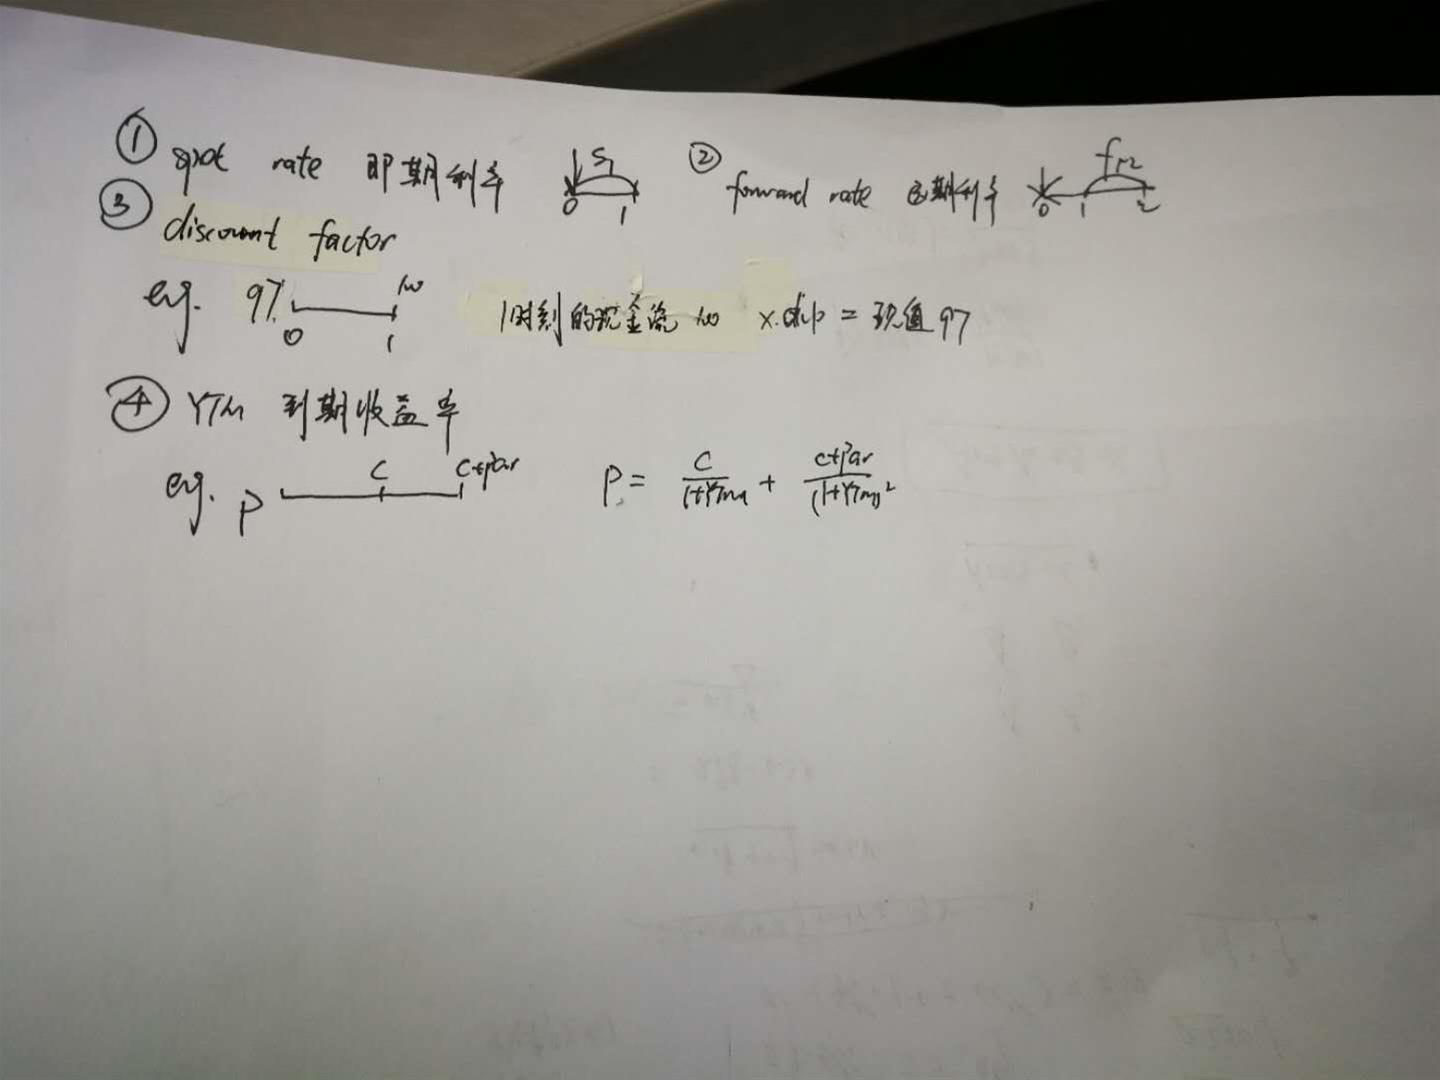 ① spot rate 即期利率 S1 0 1 ② forward rate 远期利率 f1,2 0 1 2
③ discount factor
eg. 97 100 0 1 1时刻的现金流 100 × d.f = 现值 97
④ YTM 到期收益率
eg. P C C+par P = C/(1+YTM) + C+par/(1+YTM)²